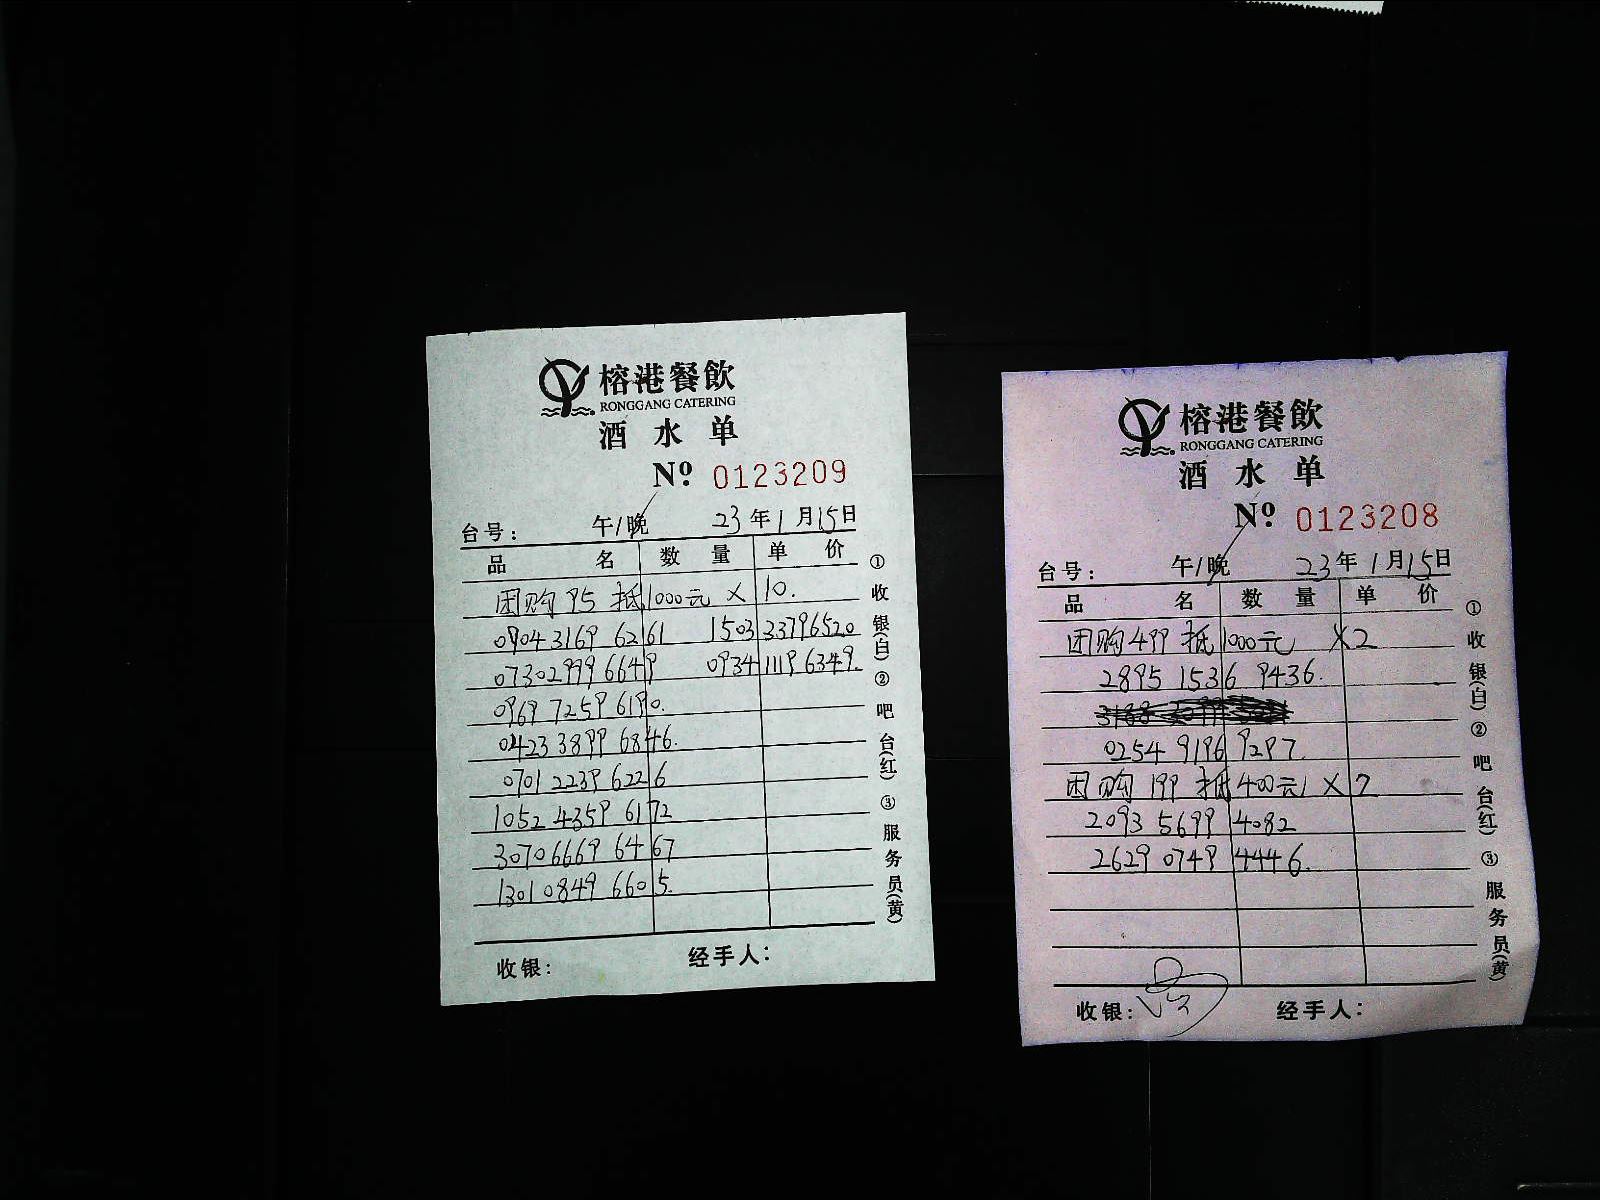 榕港餐飲
RONGGANG CATERING
酒水单
Nº 0123209
台号： 午/晚 23年1月15日
品名 数量 单价
团购95抵1000元 X 10.
0904 3169 6261 1503 3379 6520
0730 2999 6649 0934 1119 6349.
0969 7259 6190.
0423 3899 6846.
0701 2239 6226
1052 4359 6172
3070 6669 6467
1301 0849 6605.
收银： 经手人：
①收银(白)②吧台(红)③服务员(黄)
榕港餐飲
RONGGANG CATERING
酒水单
Nº 0123208
台号： 午/晚 23年1月15日
品名 数量 单价
团购499抵1000元 X2
2895 1536 9436.
0254 9196 9297.
团购199抵400元 X2
2093 5699 4082
2629 0749 4446.
收银： 经手人：
①收银(白)②吧台(红)③服务员(黄)